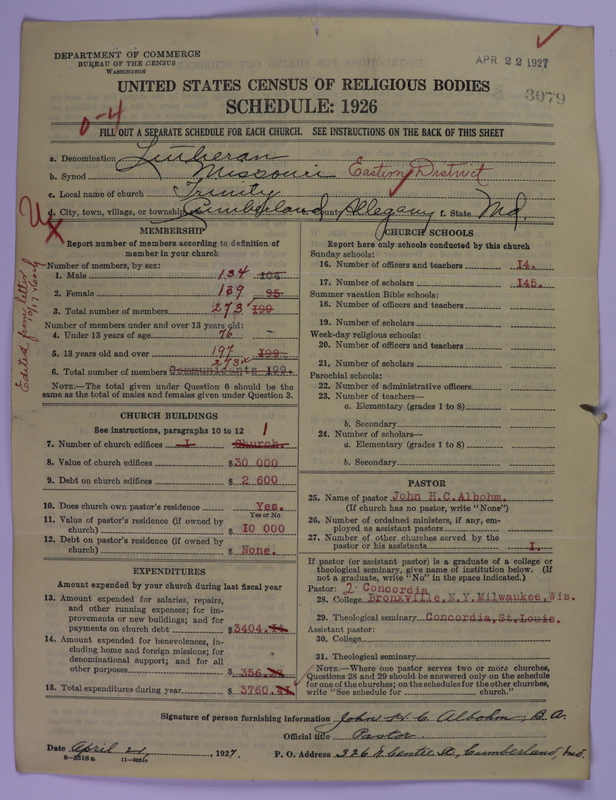 DEPARTMENT OF COMMERCE
BUREAU OF THE CENSUS
WASHINGTON
APR 22 1927
3079
UNITED STATES CENSUS OF RELIGIOUS BODIES
SCHEDULE: 1926
0-4
FILL OUT A SEPARATE SCHEDULE FOR EACH CHURCH. SEE INSTRUCTIONS ON THE BACK OF THIS SHEET
a. Denomination Lutheran
b. Synod Missouri Eastern District
c. Local name of church Trinity
d. City, town, village, or township Cumberland County Allegany f. State Md.
MEMBERSHIP
Report number of members according to definition of
member in your church
Number of members, by sex:
1. Male 134 104
2. Female 139 95
3. Total number of members 273 199
Number of members under and over 13 years old:
4. Under 13 years of age 76 -
5. 13 years old and over 197 199
273
6. Total number of members Communicants 199.
NOTE.—The total given under Question 6 should be the
same as the total of males and females given under Question 3.
Edited from letter
CHURCH BUILDINGS
See instructions, paragraphs 10 to 12
1
7. Number of church edifices 1 Church.
8. Value of church edifices $30 000
9. Debt on church edifices $ 2 600
10. Does church own pastor's residence Yes.
Yes or No
11. Value of pastor's residence (if owned by
church) $ 10 000
12. Debt on pastor's residence (if owned by
church) $ None.
EXPENDITURES
Amount expended by your church during last fiscal year
13. Amount expended for salaries, repairs,
and other running expenses; for im-
provements or new buildings; and for
payments on church debt $3404.
14. Amount expended for benevolences, in-
cluding home and foreign missions; for
denominational support; and for all
other purposes $ 356.
15. Total expenditures during year $ 3760.
CHURCH SCHOOLS
Report here only schools conducted by this church
Sunday schools:
16. Number of officers and teachers 14.
17. Number of scholars 145.
Summer vacation Bible schools:
18. Number of officers and teachers
19. Number of scholars
Week-day religious schools:
20. Number of officers and teachers
21. Number of scholars
Parochial schools:
22. Number of administrative officers
23. Number of teachers—
a. Elementary (grades 1 to 8)
b. Secondary
24. Number of scholars—
a. Elementary (grades 1 to 8)
b. Secondary
PASTOR
25. Name of pastor John H.C.Albohm.
(If church has no pastor, write "None")
26. Number of ordained ministers, if any, em-
ployed as assistant pastors
27. Number of other churches served by the
pastor or his assistants 1.
If pastor (or assistant pastor) is a graduate of a college or
theological seminary, give name of institution below. (If
not a graduate, write "No" in the space indicated.)
Pastor: 2 Concordia
28. College Bronxville,N.Y.Milwaukee,Wis.
29. Theological seminary Concordia,St.Louis.
Assistant pastor:
30. College
31. Theological seminary
NOTE.—Where one pastor serves two or more churches,
Questions 28 and 29 should be answered only on the schedule
for one of the churches; on the schedules for the other churches,
write "See schedule for church."
Signature of person furnishing information John H. C. Albohm, B.A.
Official title Pastor
Date April 21, 1927.
P. O. Address 326 N Centre St., Cumberland, Md.
8-5518 a